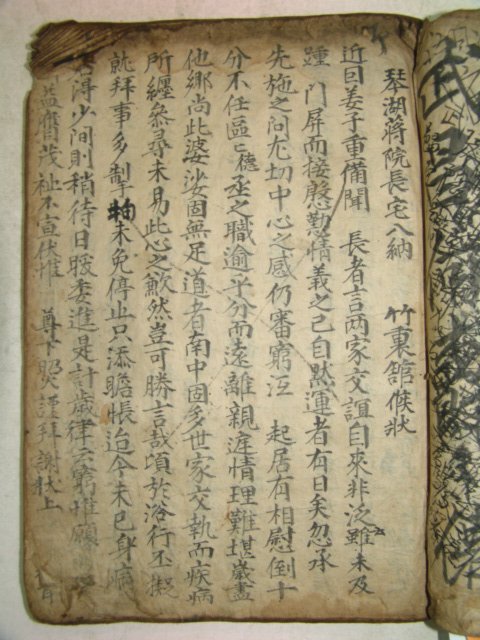 琴湖蒋院長宅入納　竹裏舘候狀
近因姜子重備聞　長者言两家交誼自來非泛雖未及
踵　門屏而接慇懃情義之已自黙運者有日矣忽承
先施之问尤切中心之感仍審窮沍　起居有相慰倒十
分不任區〻德丞之職逾半分而遠離親涯情理難堪歲盡
他鄉尚此婆娑固無足道者南中固多世家交執而疾病
所纏叅尋未易此心之歉然豈可勝言哉頃於浴行丕擬
就拜事多掣未免停止只添瞻悵迨今未已身病
得少间則稍待日暖委進是計歲律云窮惟願
益膺茂祉不宣伏惟　尊下照謹拜謝狀上